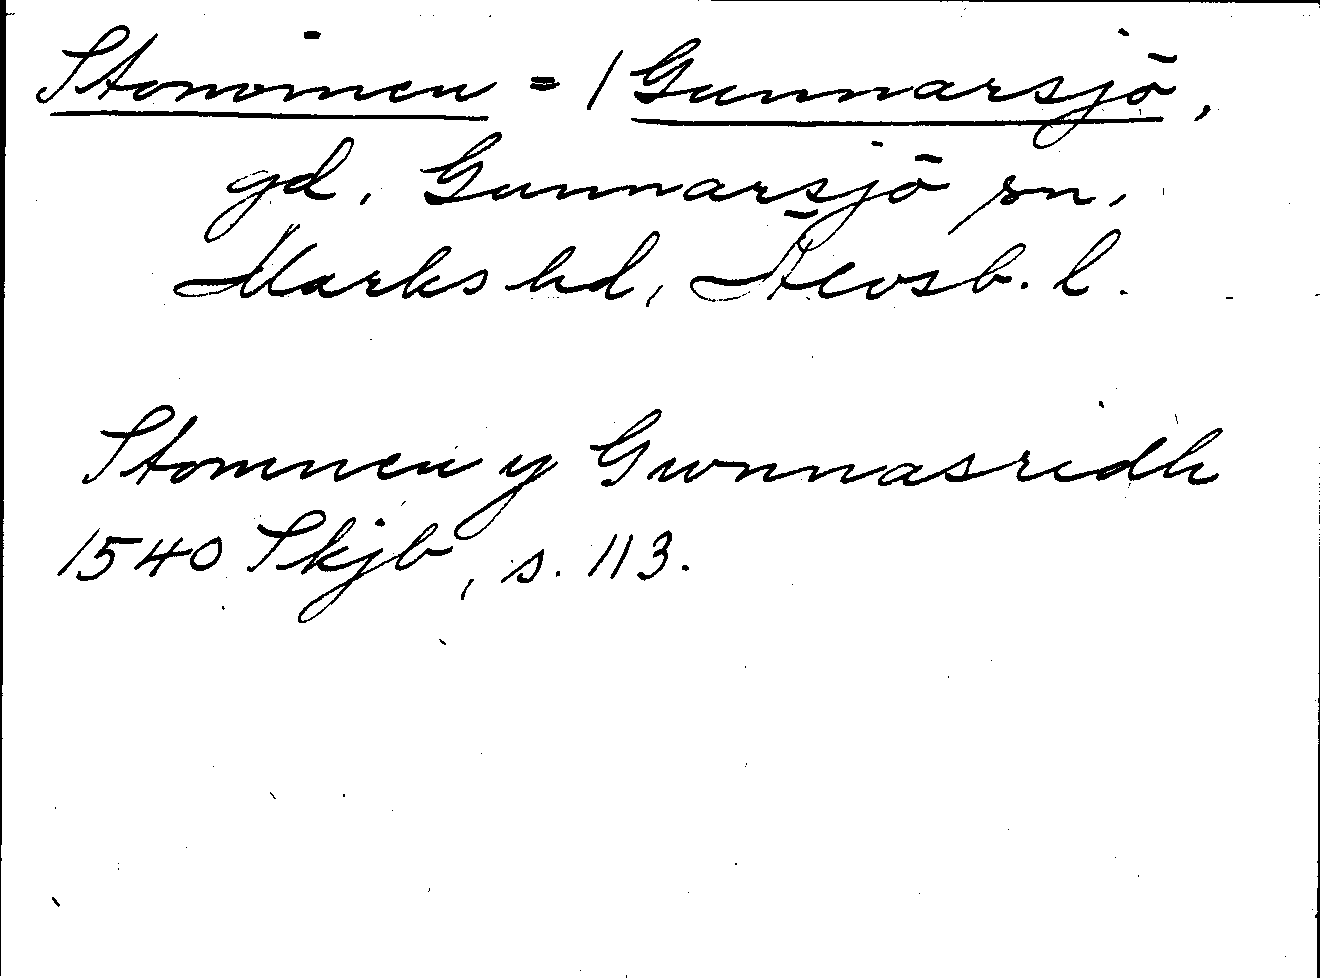 Stommen = / Gunnarsjö,
gd, Gunnarsjö sn,
Marks hd, Älvsb. l.
Stomnen y Gwnnasredh
1540 Skjb, s. 113.